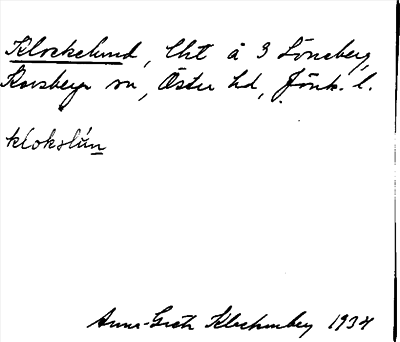 Klockelund, lht å 3 Löneberg,
Korsberga sn, Östra hd, Jönk. l.
klokslún
Anna-Greta Klockenberg 1934